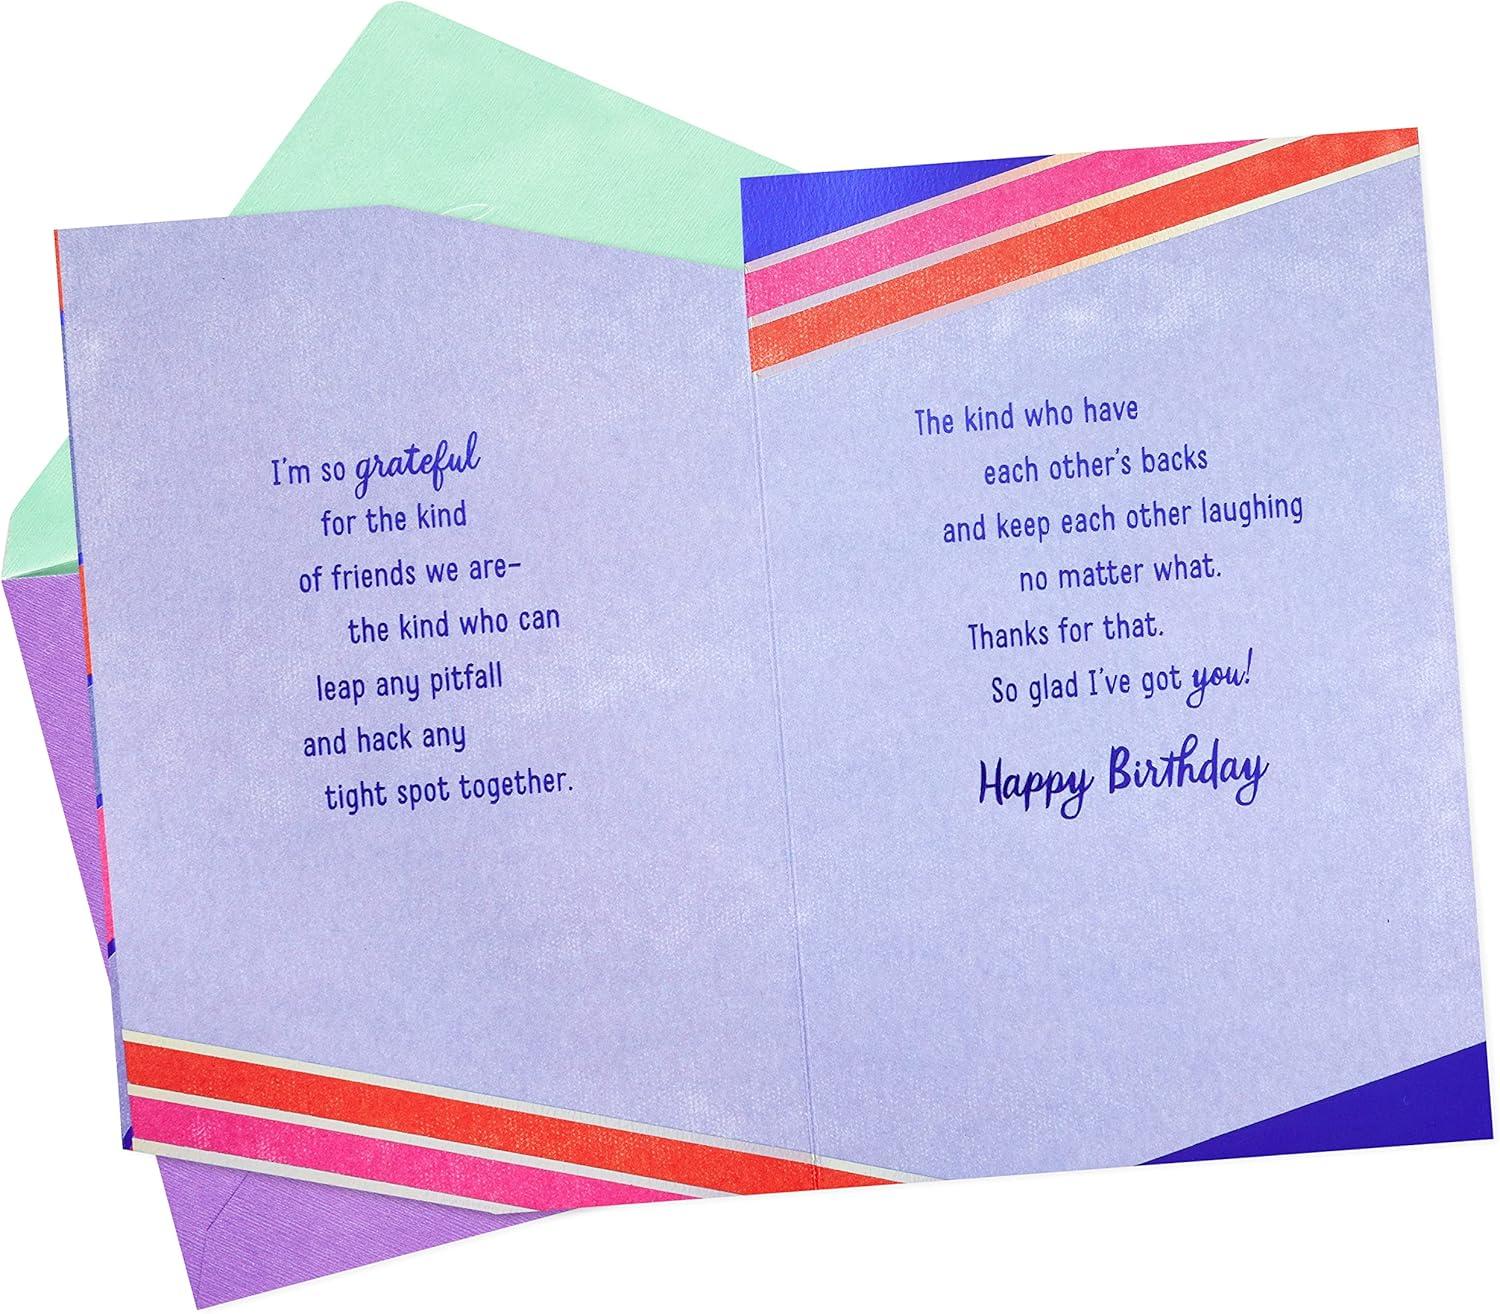 I'm so grateful
for the kind
of friends we are–
the kind who can
leap any pitfall
and hack any
tight spot together.
The kind who have
each other's backs
and keep each other laughing
no matter what.
Thanks for that.
So glad I've got you!
Happy Birthday